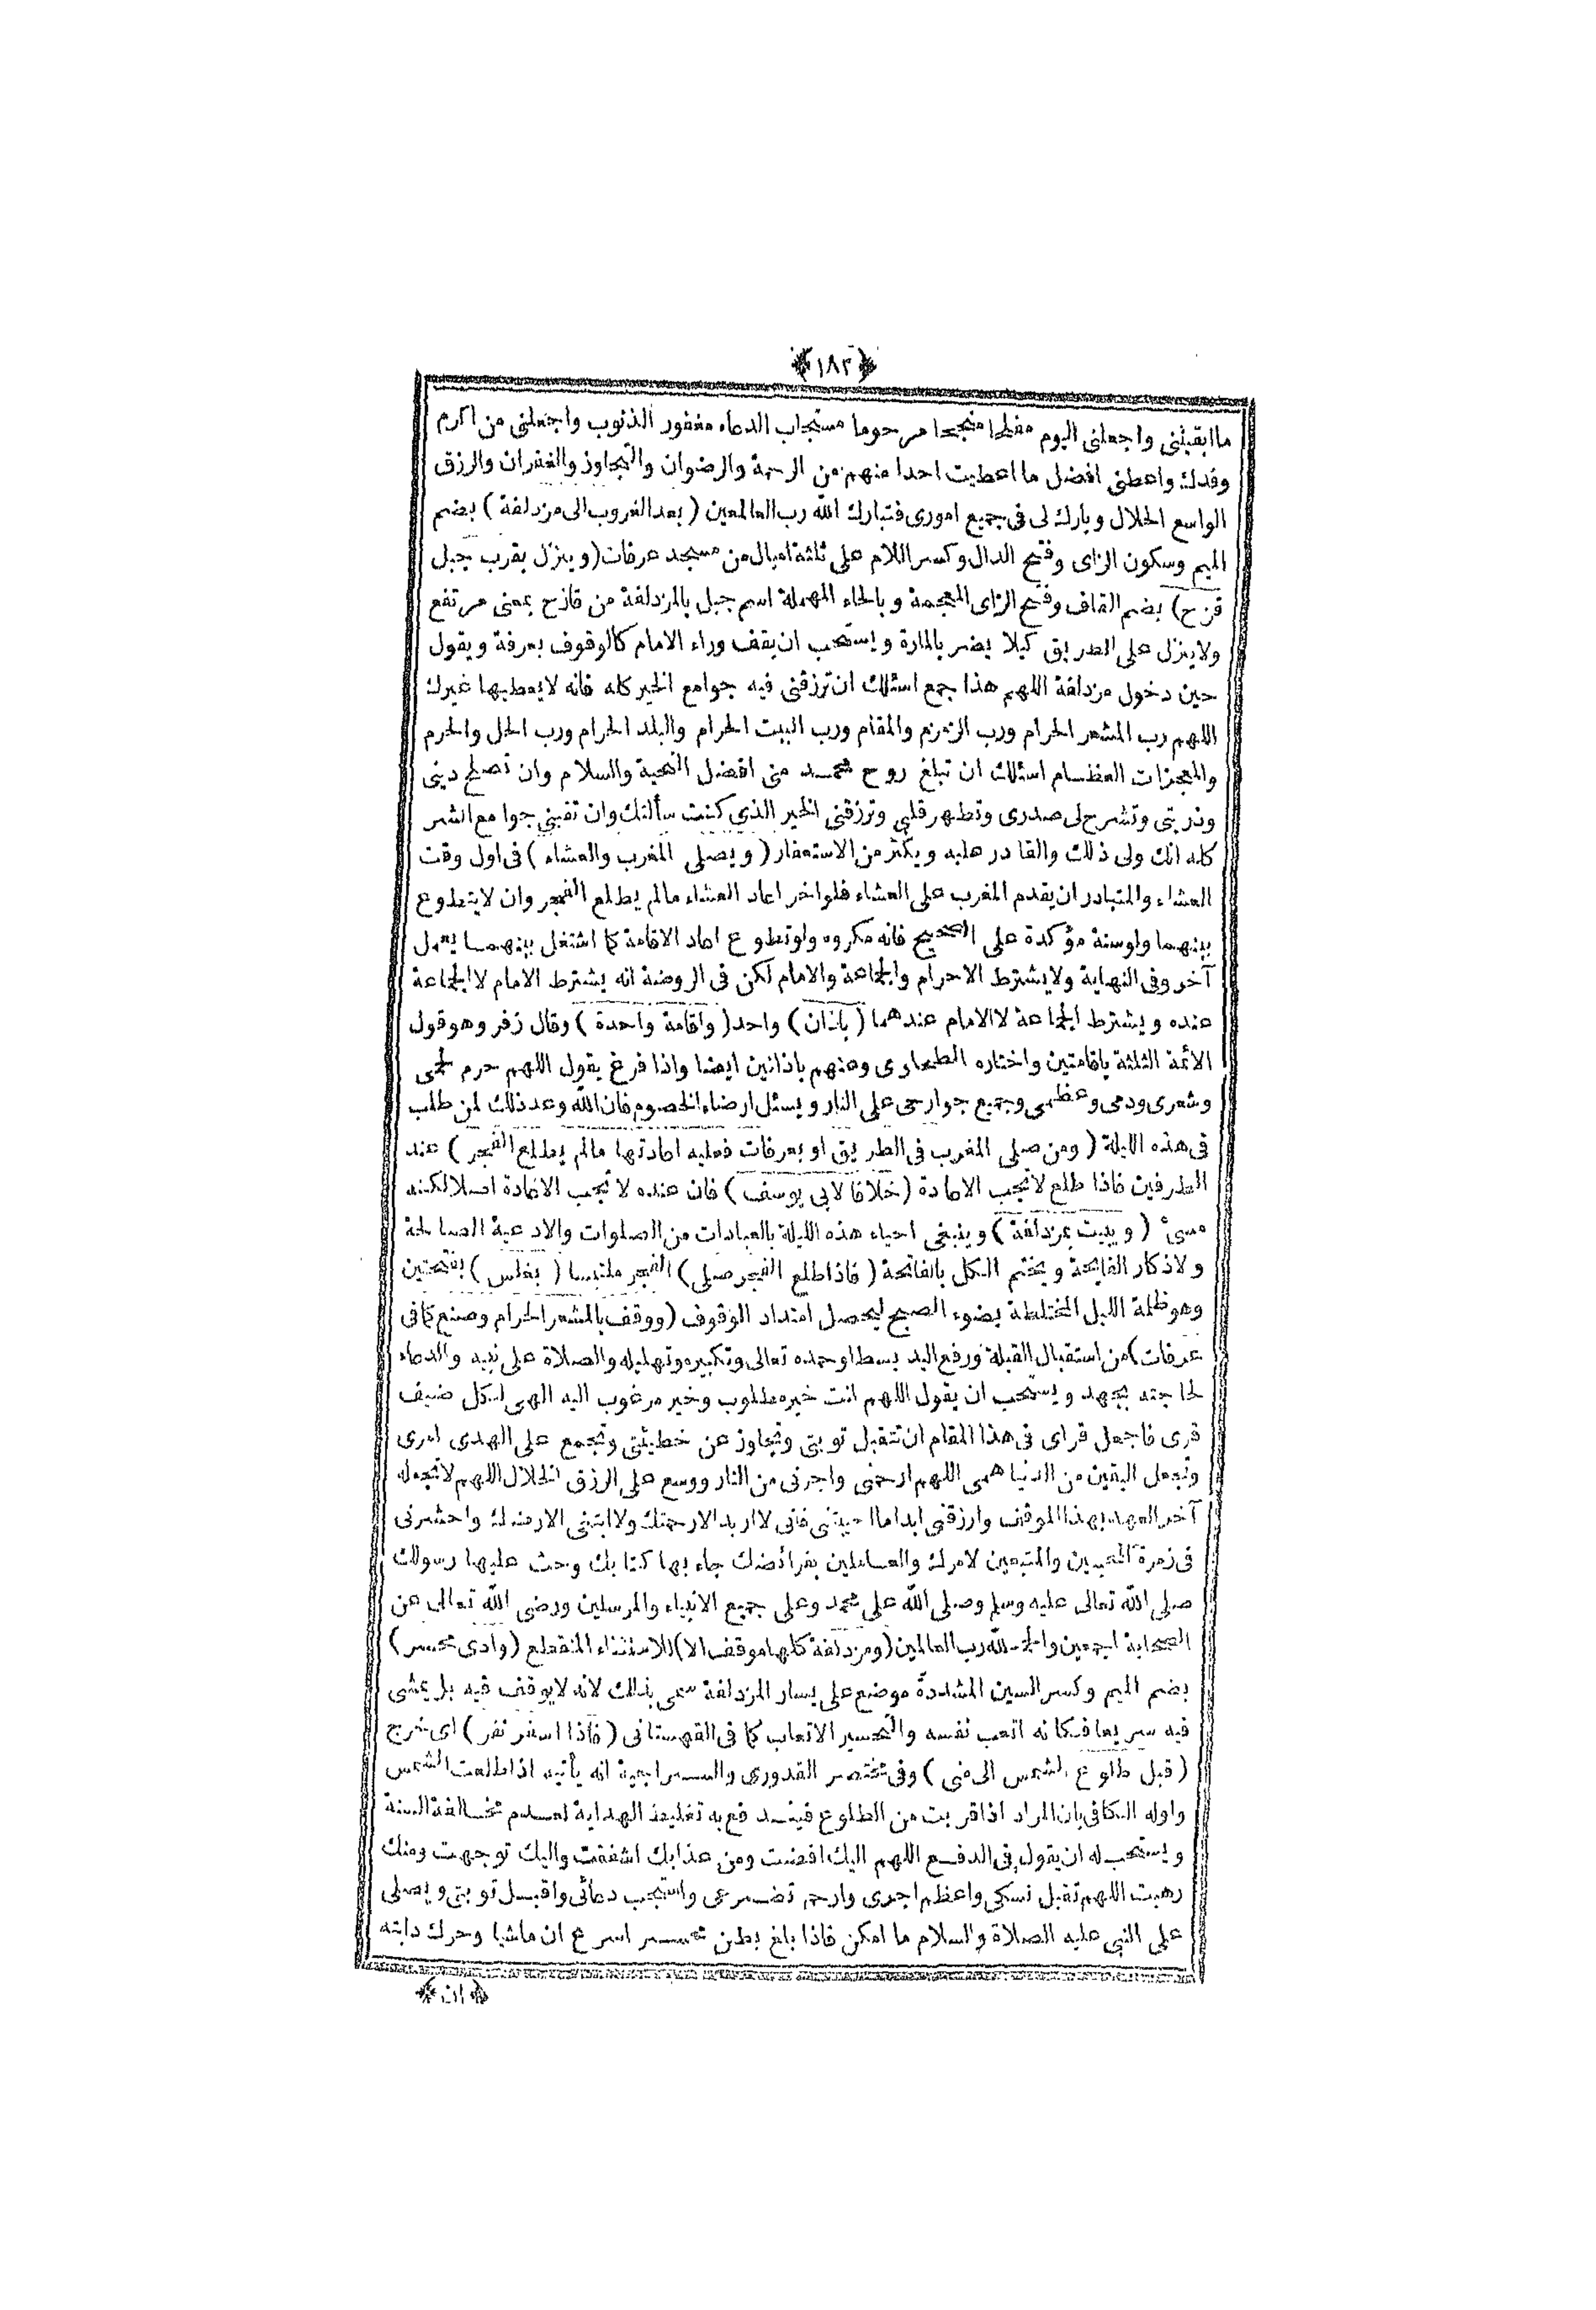 ﴿١٨٢﴾
ما ابقيتنى واجعلنى اليوم مفلحا منجحا مرحوما مستجاب الدعاء مغفور الذنوب واجعلنى من اكرم
وفدك واعطنى افضل ما اعطيت احدا منهم من الرحمة والرضوان والتجاوز والغفران والرزق
الواسع الحلال وبارك لى فى جميع امورى فتبارك الله رب العالمين ( بعد الغروب الى مزدلفة ) بضم
الميم وسكون الزاى وفتح الدال وكسر اللام على ثلثة اميال من مسجد عرفات ( وينزل بقرب جبل
قزح ) بضم القاف وفتح الزاى المعجمة وبالحاء المهملة اسم جبل بالمزدلفة من قازح بمعنى مرتفع
ولا ينزل على الطريق كيلا يضر بالمارة ويستحب ان يقف وراء الامام كالوقوف بعرفة ويقول
حين دخول مزدلفة اللهم هذا جمع اسئلك ان ترزقنى فيه جوامع الخير كله فانه لا يعطيها غيرك
اللهم رب المشعر الحرام ورب الزمزم والمقام ورب البيت الحرام والبلد الحرام ورب الحل والحرم
والمعجزات العظام اسئلك ان تبلغ روح محمد منى افضل التحية والسلام وان تصلح دينى
وذريتى وتشرح لى صدرى وتطهر قلبى وترزقنى الخير الذى كنت سألتك وان تقينى جوامع الشر
كله انك ولى ذلك والقادر عليه ويكثر من الاستغفار ( ويصلى المغرب والعشاء ) فى اول وقت
العشاء والمتبادر ان يقدم المغرب على العشاء فلو اخر اعاد العشاء مالم يطلع الفجر وان لا يتطوع
بينهما ولو سنة مؤكدة على الصحيح فانه مكروه ولو تطوع اعاد الاقامة كما اشتغل بينهما بعمل
آخر وفى النهاية ولا يشترط الاحرام والجماعة والامام لكن فى الروضة انه يشترط الامام لا الجماعة
عنده ويشترط الجماعة لا الامام عندهما ( باذان ) واحد ( واقامة واحدة ) وقال زفر وهو قول
الأئمة الثلثة باقامتين واختاره الطحاوى وعنهم باذانين ايضا واذا فرغ يقول اللهم حرم لحمى
وشعرى ودمى وعظمى وجميع جوارحى على النار ويسئل ارضاء الخصوم فان الله وعد ذلك لمن طلب
فى هذه الليلة ( ومن صلى المغرب فى الطريق او بعرفات فعليه اعادتها مالم يطلع الفجر ) عند
الطرفين فاذا طلع لا تجب الاعادة ( خلافا لابى يوسف ) فان عنده لا تجب الاعادة اصلا لكنه
مسئ ( ويبيت بمزدلفة ) وينبغى احياء هذه الليلة بالعبادات من الصلوات والادعية الصالحة
ولاذكار الفايحة ويختم الكل بالفاتحة ( فاذا طلع الفجر صلى ) الفجر ملتبسا ( بغلس ) بفتحتين
وهو ظلمة الليل المختلطة بضوء الصبح ليحصل امتداد الوقوف ( ووقف بالمشعر الحرام وصنع كما فى
عرفات ) من استقبال القبلة ورفع اليد بسطا وحمده تعالى وتكبيره وتهليله والصلاة على نبيه والدعاء
لحاجته بجهد ويستحب ان يقول اللهم انت خير مطلوب وخير مرغوب اليه الهى لكل ضيف
قرى فاجعل قراى فى هذا المقام ان تتقبل توبتى وتجاوز عن خطيئتى وتجمع على الهدى امرى
وتجعل اليقين من الدنيا همى اللهم ارحمنى واجرنى من النار ووسع على الرزق الحلال اللهم لا تجعله
آخر العهد بهذا الموقف وارزقنى ابدا ما احييتنى فانى لا اريد الا رحمتك ولا ابتغى الا رضاك واحشرنى
فى زمرة المخبتين والمتبعين لامرك والعاملين بفرائضك جاء بها كتابك وحث عليها رسولك
صلى الله تعالى عليه وسلم وصلى الله على محمد وعلى جميع الانبياء والمرسلين ورضى الله تعالى عن
الصحابة اجمعين والحمد لله رب العالمين ( ومزدلفة كلها موقف الا ) للاستثناء المنقطع ( وادى محسر )
بضم الميم وكسر السين المشددة موضع على يسار المزدلفة سمى بذلك لانه لا يوقف فيه بل يمشى
فيه سريعا فكانه اتعب نفسه والتحسير الاتعاب كما فى القهستانى ( فاذا اسفر نفر ) اى خرج
( قبل طلوع الشمس الى منى ) وفى مختصر القدورى والسراجية انه يأتيه اذا طلعت الشمس
واوله الكافى بان المراد اذا قربت من الطلوع فيندفع به تغليط الهداية لعدم مخالفة السنة
ويستحب له ان يقول فى الدفع اللهم اليك افضت ومن عذابك اشفقت واليك توجهت ومنك
رهبت اللهم تقبل نسكى واعظم اجرى وارحم تضرعى واستجب دعائى واقبل توبتى ويصلى
على النبى عليه الصلاة والسلام ما امكن فاذا بلغ بطن محسر اسرع ان ماشيا وحرك دابته
﴿ان﴾